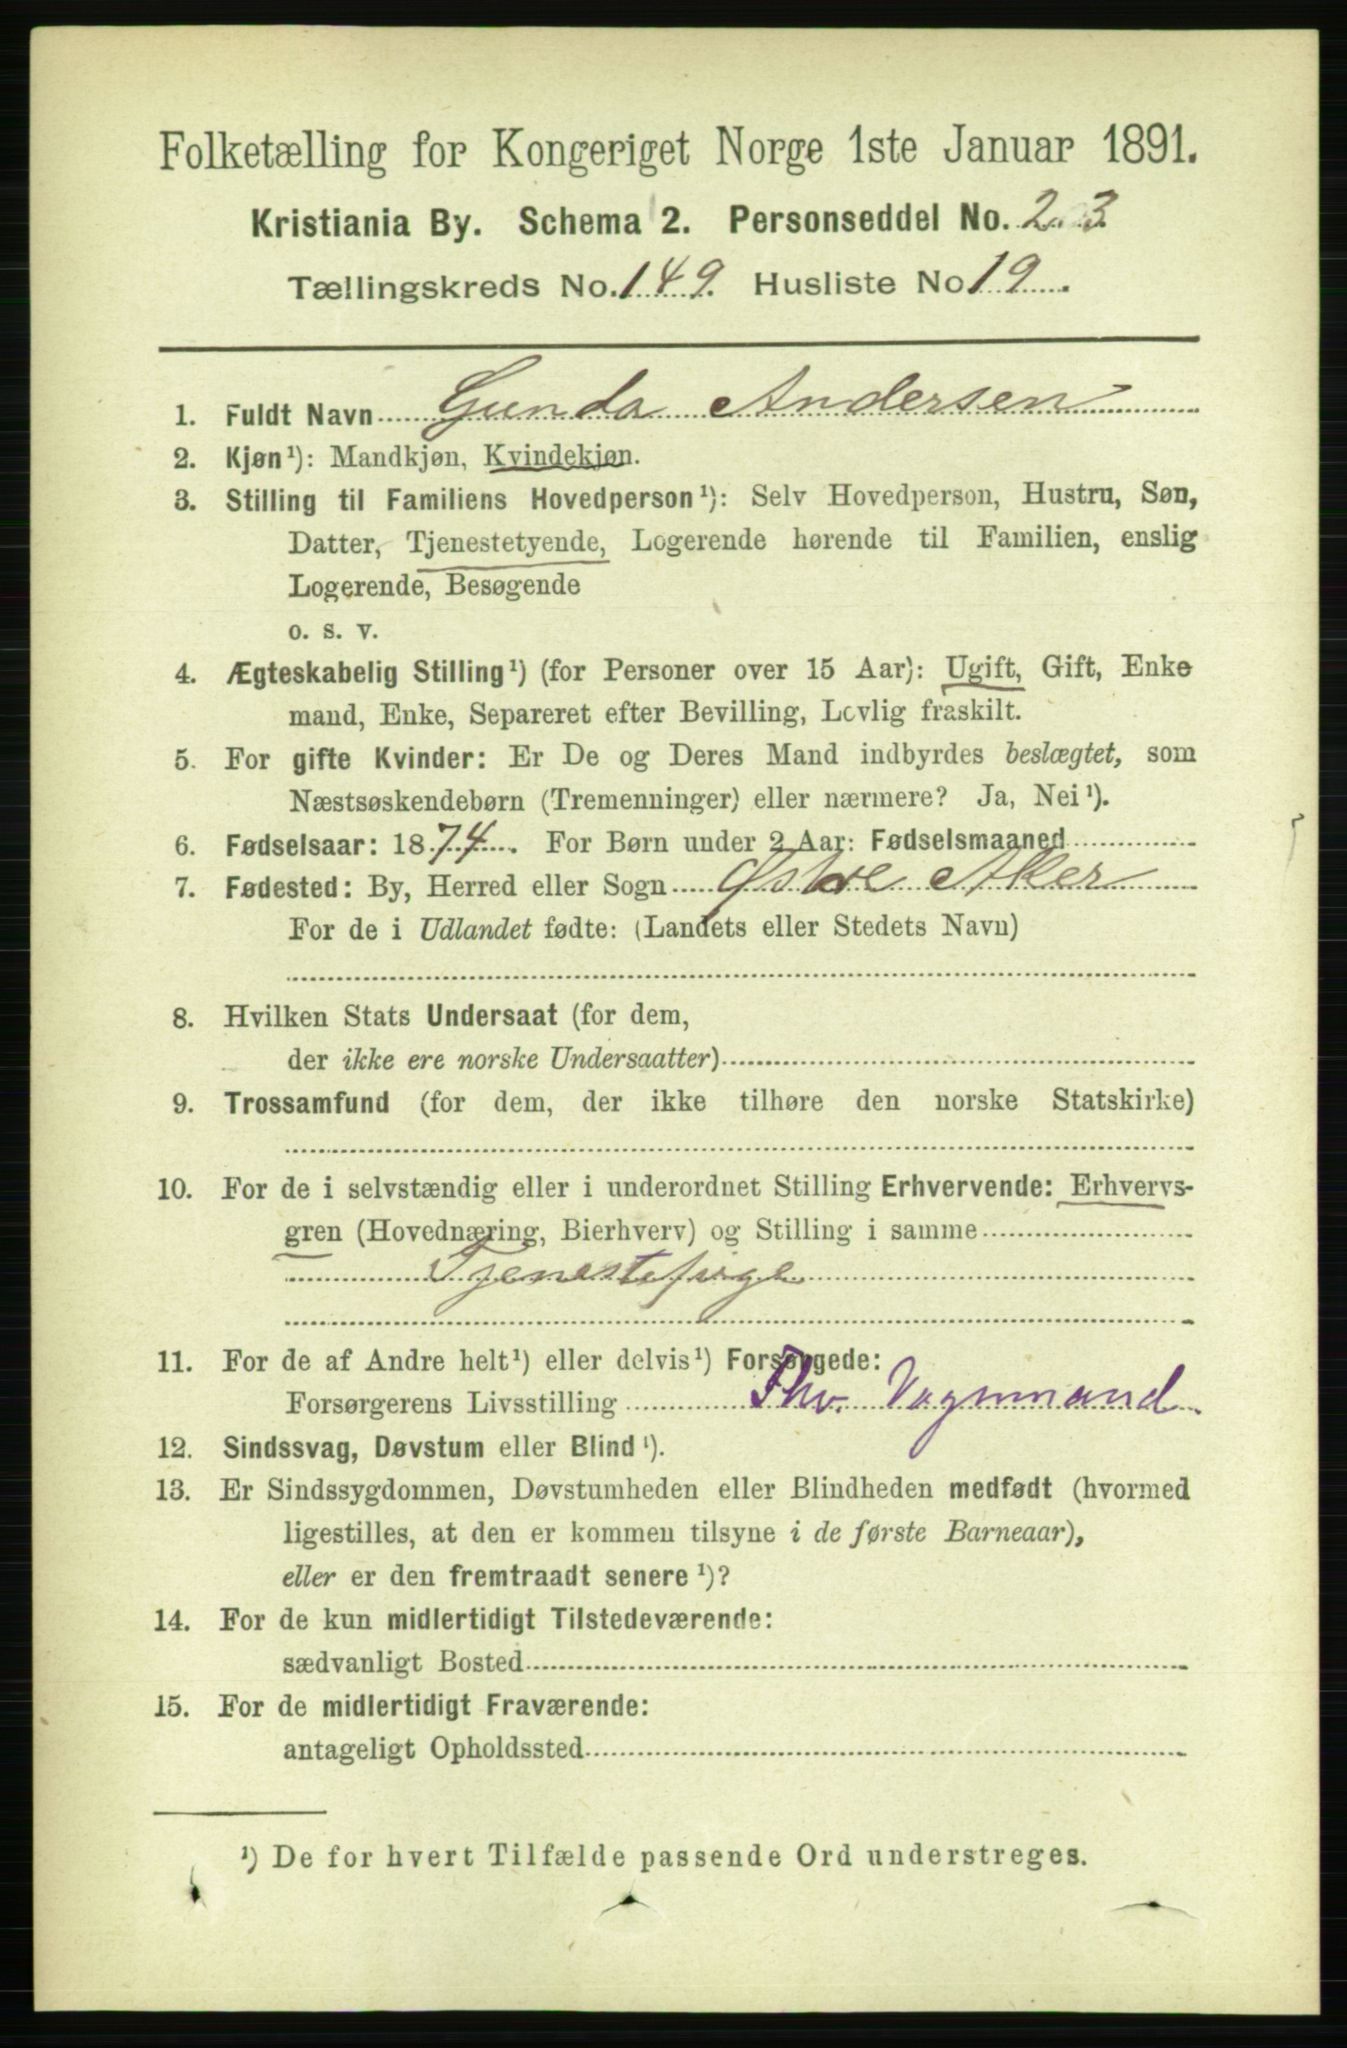 Folketælling for Kongeriget Norge 1ste Januar 1891.
Kristiania By. Schema 2. Personseddel No. 23
Tællingskreds No. 149. Husliste No 19
1. Fuldt Navn Gunda Andersen
2. Kjøn¹): Mandkjøn, Kvindekjøn.
3. Stilling til Familiens Hovedperson¹): Selv Hovedperson, Hustru, Søn,
Datter, Tjenestetyende, Logerende hørende til Familien, enslig
Logerende, Besøgende
o. s. v.
4. Ægteskabelig Stilling¹) (for Personer over 15 Aar): Ugift, Gift, Enke
mand, Enke, Separeret efter Bevilling, Lovlig fraskilt.
5. For gifte Kvinder: Er De og Deres Mand indbyrdes beslægtet, som
Næstsøskendebørn (Tremenninger) eller nærmere? Ja, Nei¹).
6. Fødselsaar: 1874. For Børn under 2 Aar: Fødselsmaaned
7. Fødested: By, Herred eller Sogn Østre Aker
For de i Udlandet fødte: (Landets eller Stedets Navn)
8. Hvilken Stats Undersaat (for dem,
der ikke ere norske Undersaatter)
9. Trossamfund (for dem, der ikke tilhøre den norske Statskirke)
10. For de i selvstændig eller i underordnet Stilling Erhvervende: Erhvervs-
gren (Hovednæring, Bierhverv) og Stilling i samme
Tjenestepige
11. For de af Andre helt¹) eller delvis¹) Forsørgede:
Forsørgerens Livsstilling Thv. Vognmand
12. Sindssvag, Døvstum eller Blind¹).
13. Er Sindssygdommen, Døvstumheden eller Blindheden medfødt (hvormed
ligestilles, at den er kommen tilsyne i de første Barneaar),
eller er den fremtraadt senere¹)?
14. For de kun midlertidigt Tilstedeværende:
sædvanligt Bosted
15. For de midlertidigt Fraværende:
antageligt Opholdssted
¹) De for hvert Tilfælde passende Ord understreges.